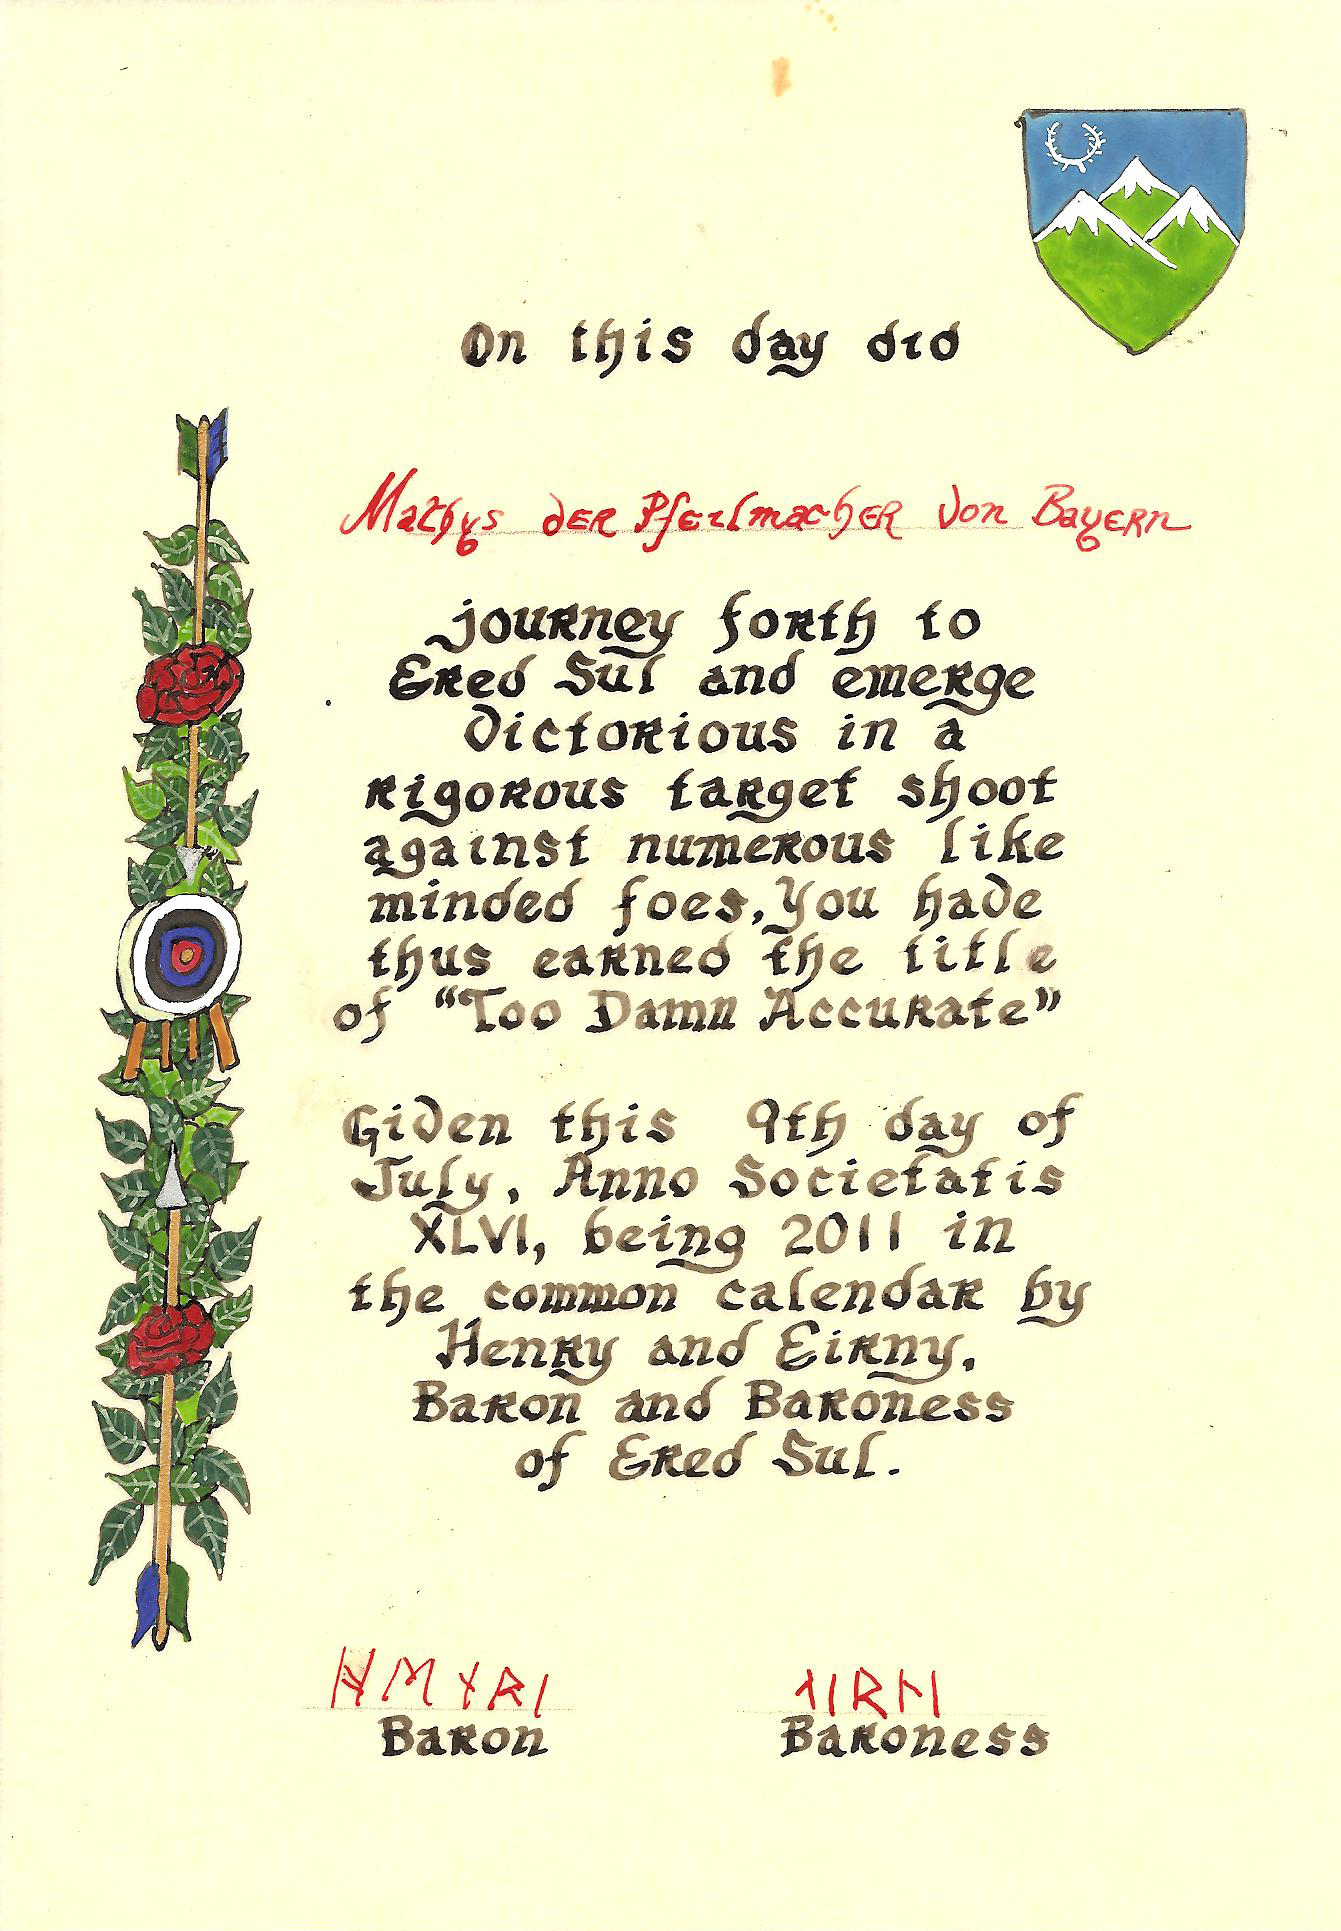 On this day did
Mathys der Pfeilmacher von Bayern
journey forth to
Ered Sul and emerge
victorious in a
rigorous target shoot
against numerous like
minded foes, You have
thus earned the title
of “Too Damn Accurate”
Given this 9th day of
July, Anno Societatis
XLVI, being 2011 in
the common calendar by
Henry and Eirny,
Baron and Baroness
of Ered Sul.
ᚺᛖᚾᚱᛁ ᛅᛁᚱᚾᛁ
Baron Baroness